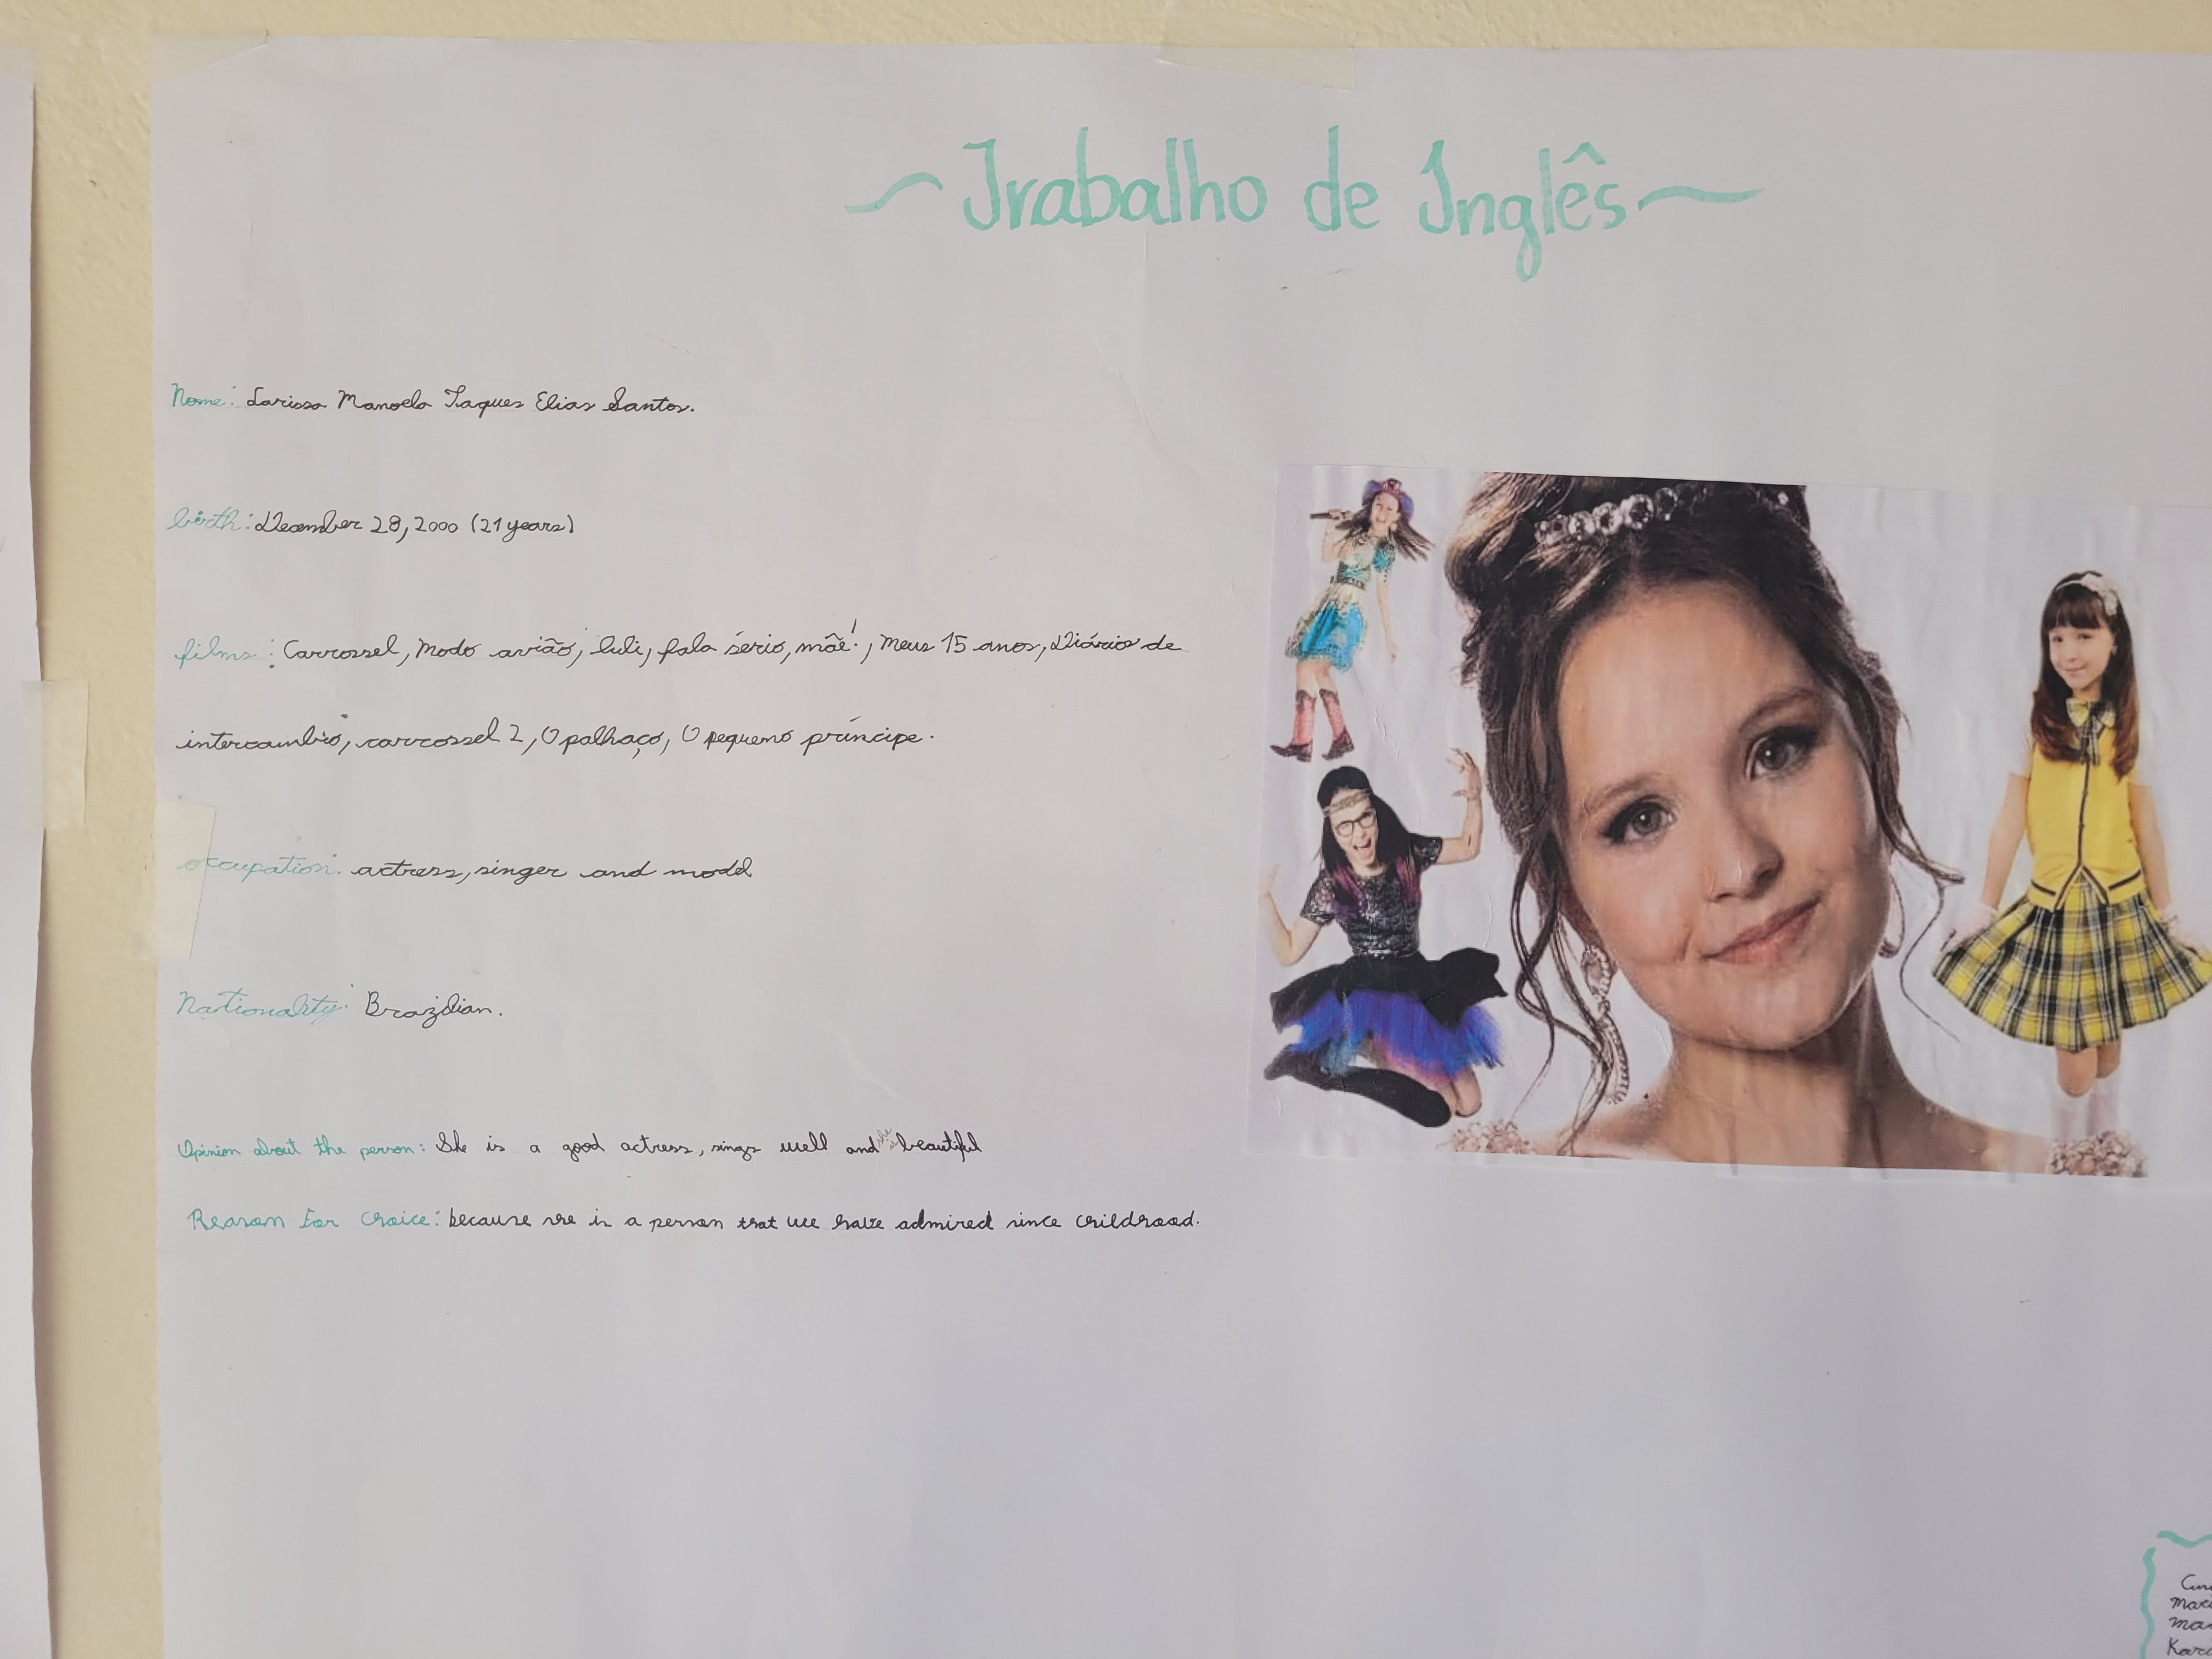 ~Trabalho de Inglês~
Nome: Larissa Manoela Taques Elias Santos.
birth: December 28, 2000 (21 years)
films: Carrossel, Modo avião, luli, fala sério, mãe!, Meus 15 anos, Diários de
intercambio, carrossel 2, O palhaço, O pequeno príncipe.
occupation: actress, singer and model
Nationality: Brazilian.
Opinion about the person: She is a good actress, sings well and she is beautiful
Reason For Choice: because she is a person that we have admired since childhood.